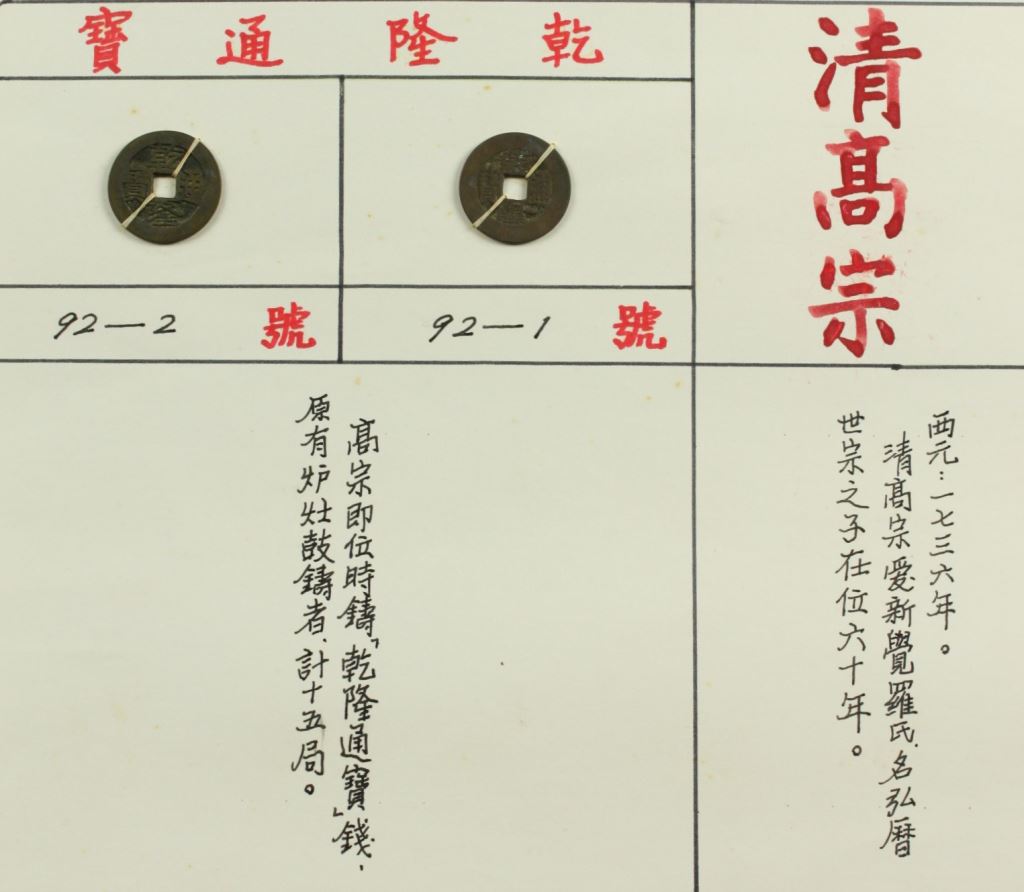 清髙宗
乾隆通寶
92—1 號
92—2 號
乾隆通寶
西元：一七三六年。
清髙宗愛新覺羅氏、名弘曆
世宗之子在位六十年。
髙宗即位時鑄「乾隆通寶」錢、
原有炉灶鼓鑄者、計十五局。